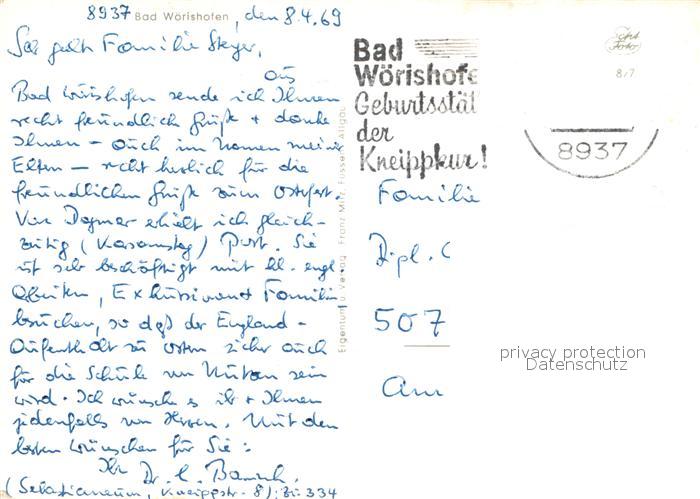 8937 Bad Wörishofen, den 8.4.69
Familie
aus
Bad Wörishofen sende ich Ihnen
recht freundlich Grüße + danke
Ihnen – auch im Namen meiner
Eltern – recht herzlich für die
freundlichen Grüße zum Osterfest.
Von Dagmar erhielt ich gleich-
zeitig (Karsamstag) Post. Sie
ist sehr beschäftigt mit kl. engl.
Familien
besuchen, so daß der England-
Aufenthalt zu Ostern sicher auch
für die Schule von Nutzen sein
wird. Ich wünsche es ihr + Ihnen
jedenfalls von Herzen. Mit den
besten Wünschen für Sie:
Ihr Dr.
(Sebastianeum, Kneippstr. 8) 334
Eigentum u. Verlag Franz Milz, Füssen, Allgäu
Bad
Wörishofe
Geburtsstät
der
Kneippkur!
Echt
Foto
8/7
8937
Familie
Dipl.
507
Am
privacy protection
Datenschutz